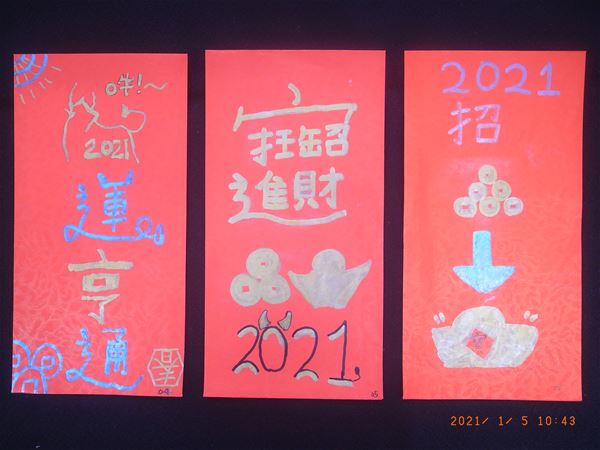 吽!~
2021
運
亨
通
04
招財進寶
2021
05
2021
招
2021/ 1/ 5 10:43